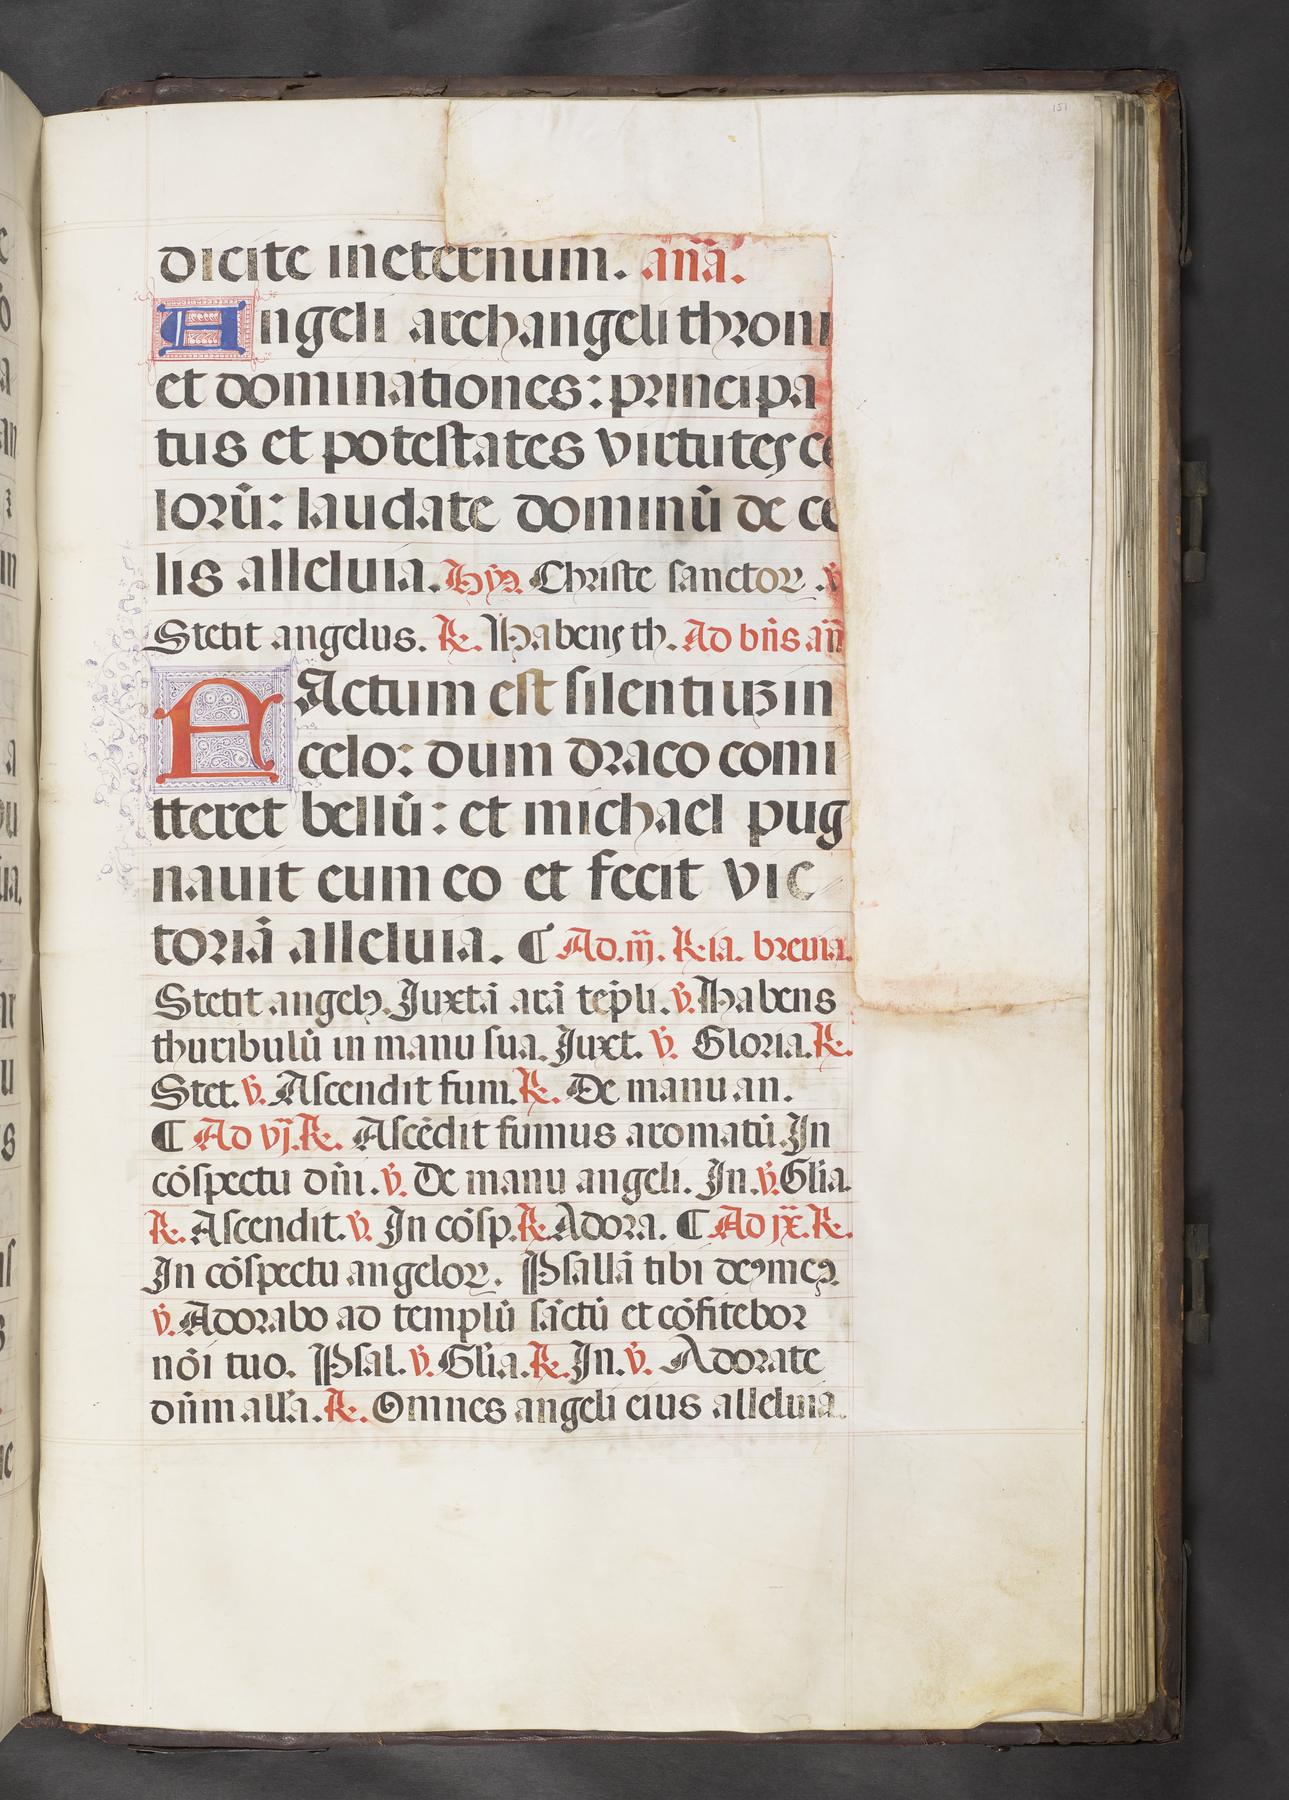 151
dicite in eternum. an̄a.
Angeli archangeli throni
et dominationes: principa
tus et potestates virtutes ce
lorū: laudate dominū de ce
lis alleluia. Hyṁ. Christe sanctoꝝ. v̄
Stetit angelus. ℟. Habens th. Ad bn̄s an̄
FActum est silentiuȝ in
celo: dum draco comi
tteret bellū: et michael pug
nauit cum eo et fecit vic
toriā alleluia. ¶ Ad .iij. ℟ia. breuia.
Stetit angelꝰ. Juxtā arā tēpli. v̄. Habens
thuribulū in manu sua. Juxt. v̄. Gloria. ℟.
Stet. v̄. Ascendit fum. ℟. De manu an.
¶ Ad vj. ℟. Ascēdit fumus aromatū. In
cōspectu dn̄i. v̄. De manu angeli. In. v̄. Glīa.
℟. Ascendit. v̄. In cōsp. ℟. Adora. ¶ Ad jx. ℟.
In cōspectu angeloꝝ. Psallā tibi deꝰ meꝰ.
v̄. Adorabo ad templū sāctū et cōfitebor
nōi tuo. Psal. v̄. Glīa. ℟. In. v̄. Adorate
dn̄m all'a. ℟. Omnes angeli eius alleluia.